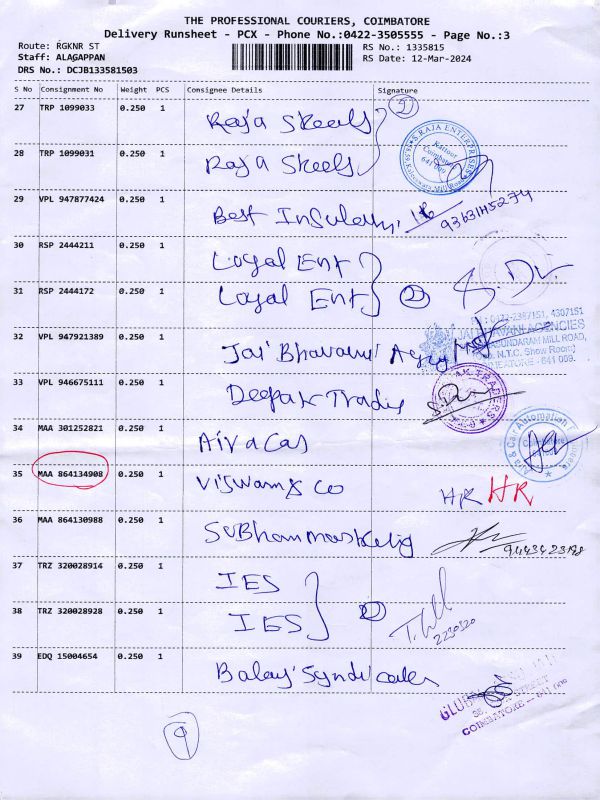 THE PROFESSIONAL COURIERS, COIMBATORE
Delivery Runsheet - PCX - Phone No.:0422-3505555 - Page No.:3
Route: RGKNR ST
Staff: ALAGAPPAN
DRS No.: DCJB133581503
RS No.: 1335815
RS Date: 12-Mar-2024
S No Consignment No Weight PCS Consignee Details Signature
27 TRP 1099033 0.250 1 Raja Steels
28 TRP 1099031 0.250 1 Raja Steels
S. RAJA ENTERPRISES
641 009
29 VPL 947877424 0.250 1 Best
30 RSP 2444211 0.250 1 Loyal Ent
31 RSP 2444172 0.250 1 Loyal Ent 2
32 VPL 947921389 0.250 1 Jai Bhavani Agency
4307151
JAI BHAVANI AGENCIES
SUNDARAM MILL ROAD,
N.T.C. Show Room)
COIMBATORE - 641 009.
33 VPL 946675111 0.250 1 Deepak Trades
DEEPAK TRADERS
34 MAA 301252821 0.250 1 Aiva Cas
35 MAA 864134908 0.250 1 Viswam & Co HR HR
36 MAA 864130988 0.250 1 Subham Marketig
37 TRZ 320028914 0.250 1 IES
38 TRZ 320028928 0.250 1 IES 2
39 EDQ 15004654 0.250 1 Balaji Syndicates
COIMBATORE - 641 009
9